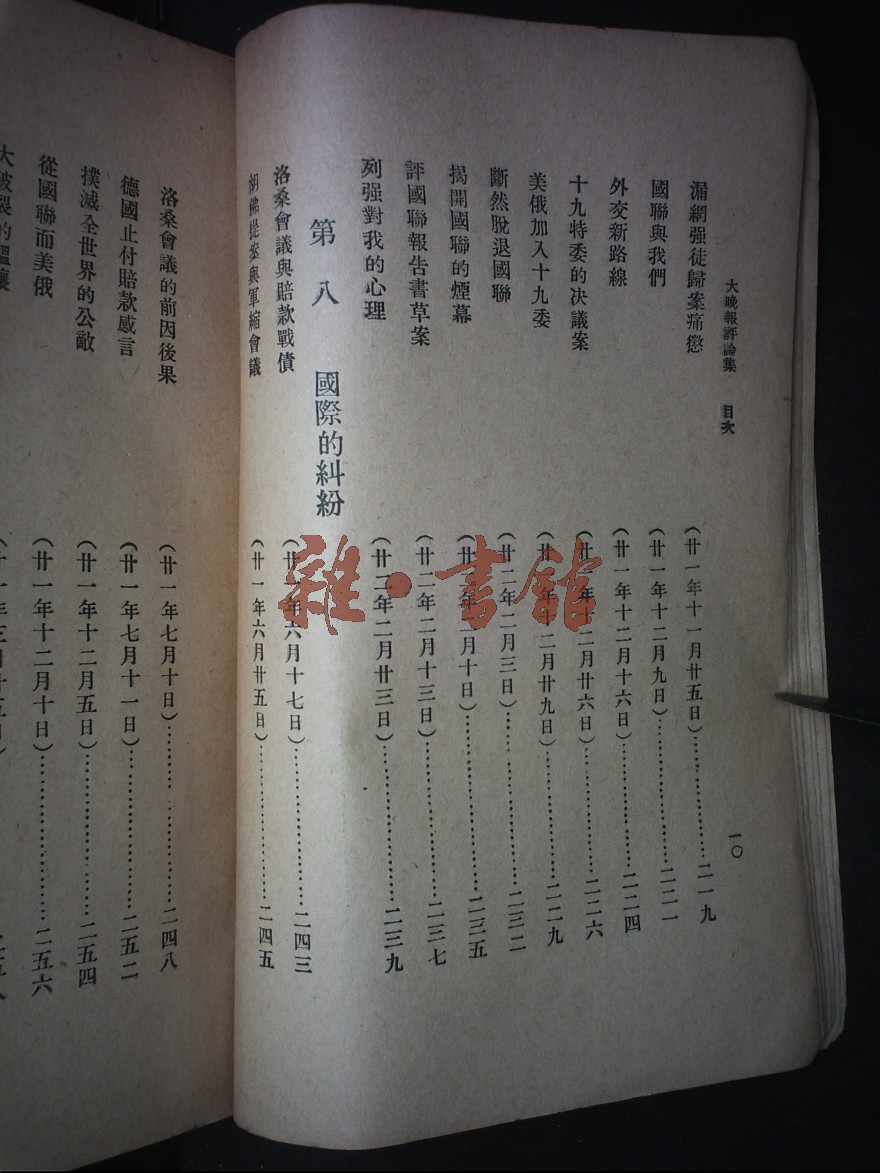 大晚報評論集 目次
一〇
漏網强徒歸案痛懲 （廿一年十一月廿五日）…………二一九
國聯與我們 （廿一年十二月九日）…………二二一
外交新路線 （廿一年十二月十六日）…………二二四
十九特委的決議案 （廿一年十二月廿六日）…………二二六
美俄加入十九委 （廿一年十二月廿九日）…………二二九
斷然脫退國聯 （廿二年二月三日）…………二三二
揭開國聯的煙幕 （廿二年二月十日）…………二三五
評國聯報告書草案 （廿二年二月十三日）…………二三七
列强對我的心理 （廿二年二月廿三日）…………二三九
第八 國際的糾紛
洛桑會議與賠款戰債 （廿一年六月十七日）…………二四三
胡佛提案與軍縮會議 （廿一年六月廿五日）…………二四五
洛桑會議的前因後果 （廿一年七月十日）…………二四八
德國止付賠款感言 （廿一年七月十一日）…………二五二
撲滅全世界的公敵 （廿一年十二月五日）…………二五四
從國聯而美俄 （廿一年十二月十日）…………二五六
大破裂的醞釀
雜·書館